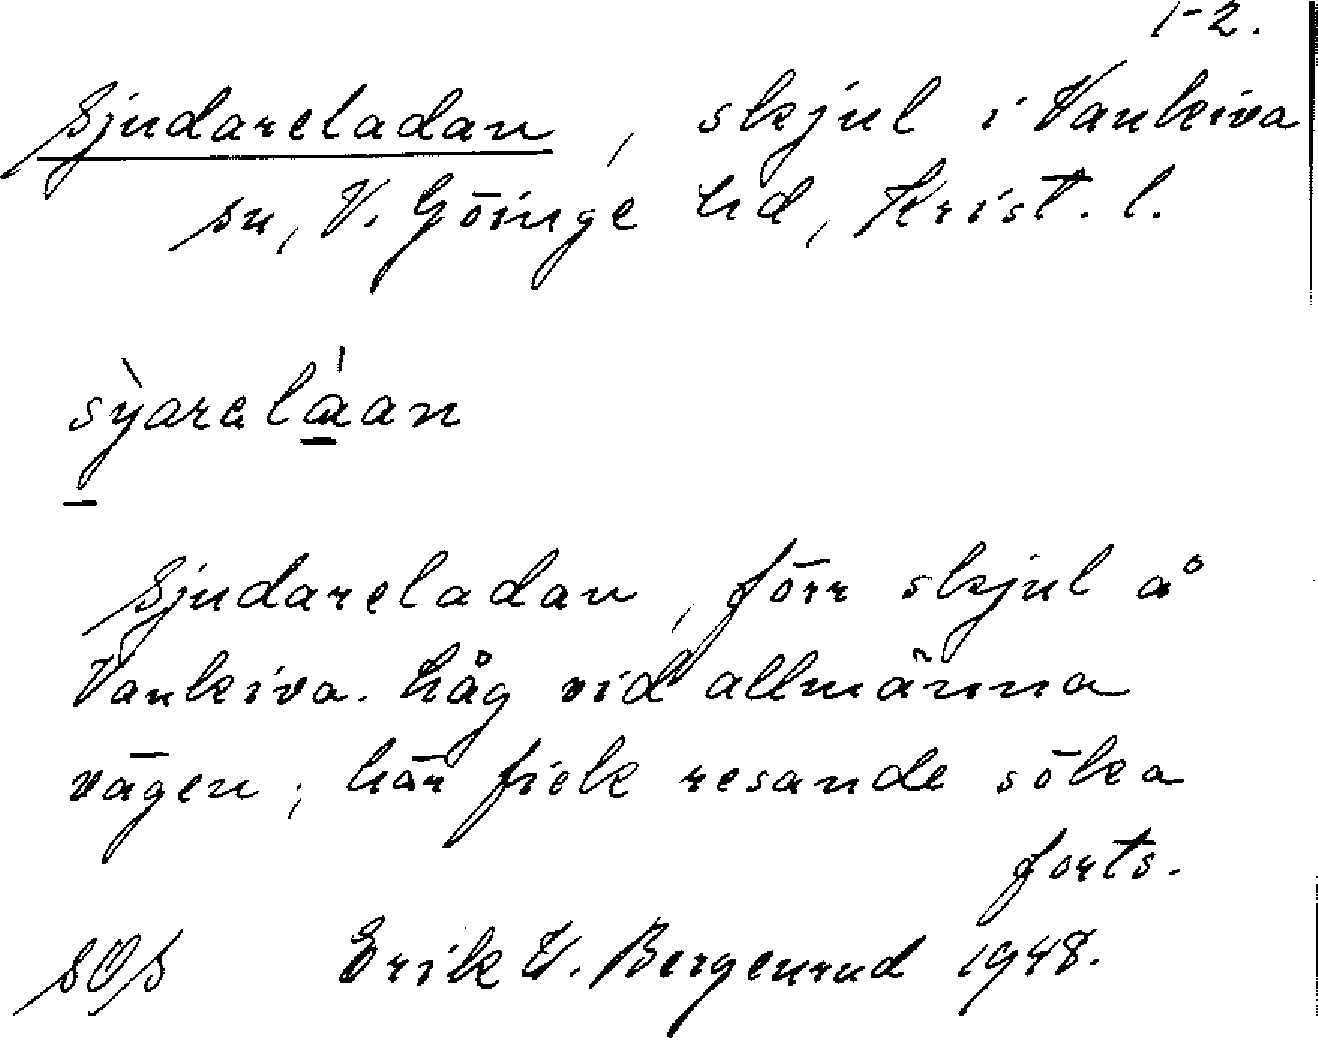 1-2.
Sjudareladan, skjul i Vankiva
sn, V. Göinge hd, Krist. l.
sỳareláan
Sjudareladan, förr skjul å
Vankiva håg vid allmänna
vägen; här fick resande söka
forts.
SOS Erik W. Bergenrud 1948.